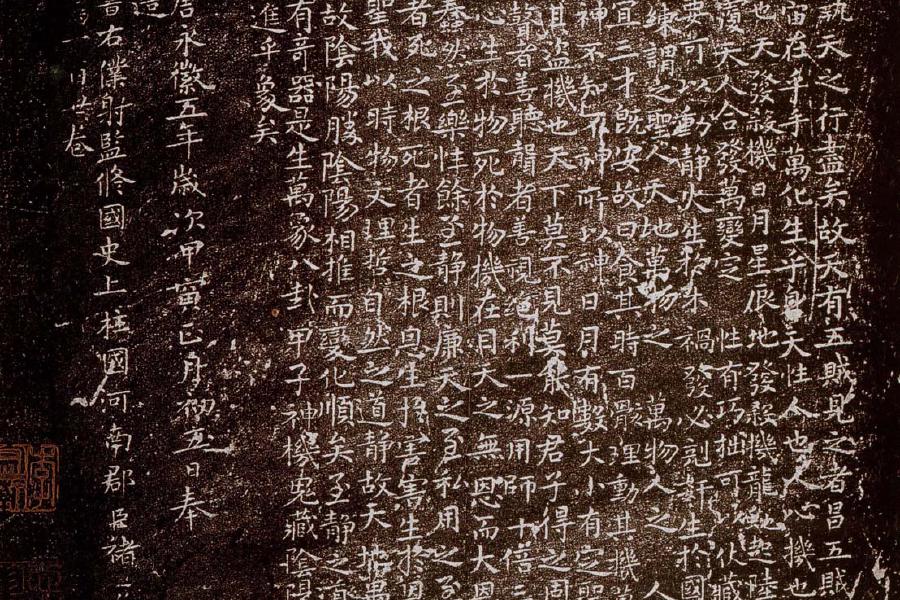 執天之行盡矣故天有五賊見之者昌五賊
宙在乎手萬化生乎身天性人也人心機也
也天發殺機日月星辰地發殺機龍蛇起陸
覆天人合發萬變定性有巧拙可以伏藏
要可以動靜火生於木禍發必剋姧生於國
練謂之聖人天地萬物之萬物人之人
宜三才既安故曰食其時百骸理動其機萬
神不知不神所以神日月有數大小有定聖
其盜機也天下莫不見莫能知君子得之固
瞽者善聽聾者善視絕利一源用師十倍三
心生於物死於物機在目天之無恩而大恩
蠢然至樂性餘至靜則廉天之至私用之至
者死之根死者生之根恩生於害害生於恩
聖我以時物文理哲自然之道靜故天地萬
故陰陽勝陰陽相推而變化順矣至靜之道
有奇器是生萬象八卦甲子神機鬼藏陰陽
進乎象矣
唐永徽五年歲次甲寅正月初五日奉
造
書右僕射監修國史上柱國河南郡臣褚
卷